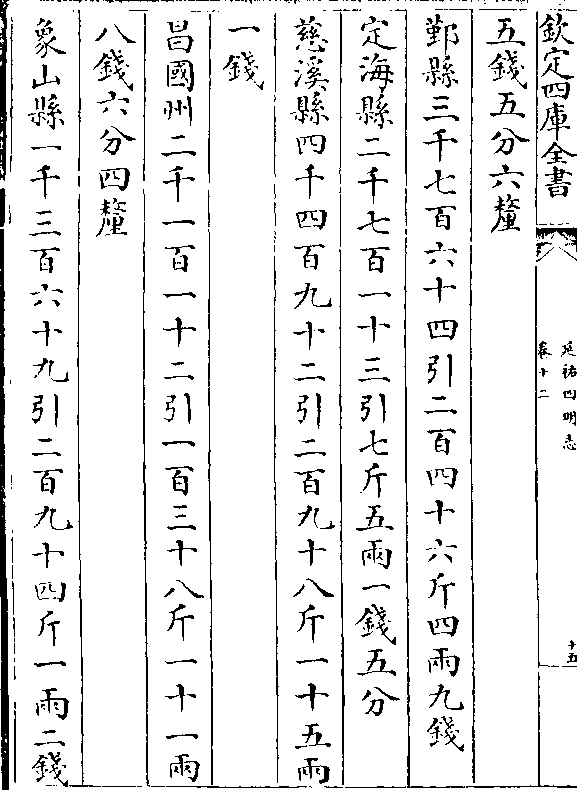 欽定四庫全書
延祐四明志
卷十二
十五
五錢五分六釐
鄞縣三千七百六十四引二百四十六斤四兩九錢
定海縣二千七百一十三引七斤五兩一錢五分
慈溪縣四千四百九十二引二百九十八斤一十五兩
一錢
昌國州二千一百一十二引一百三十八斤一十一兩
八錢六分四釐
象山縣一千三百六十九引二百九十四斤一兩二錢